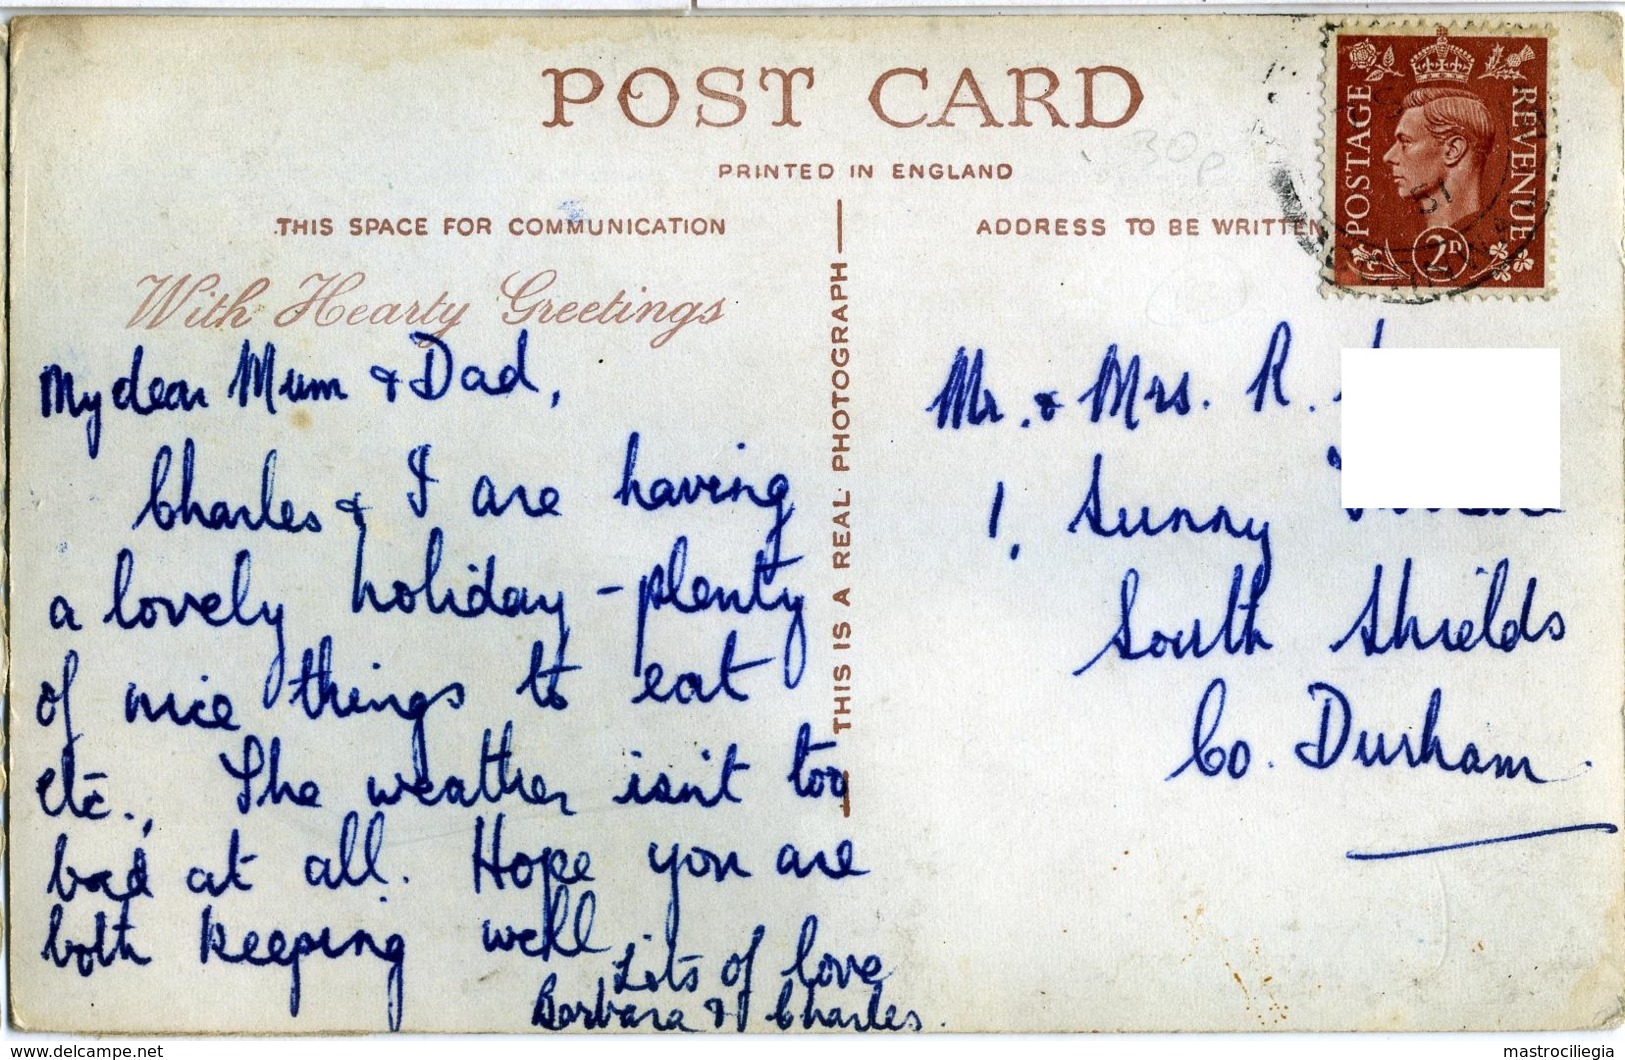 POST CARD
PRINTED IN ENGLAND
30p
THIS SPACE FOR COMMUNICATION
ADDRESS TO BE WRITTEN
With Hearty Greetings
My dear Mum & Dad,
Charles & I are having
a lovely holiday - plenty
of nice things to eat
etc., The weather isn't too
bad at all. Hope you are
both keeping well
Lots of love
Barbara & Charles.
THIS IS A REAL PHOTOGRAPH
Mr. & Mrs. R.
1, Sunny
South Shields
Co. Durham.
POSTAGE
REVENUE
2D
51
www.delcampe.net
mastrociliegia